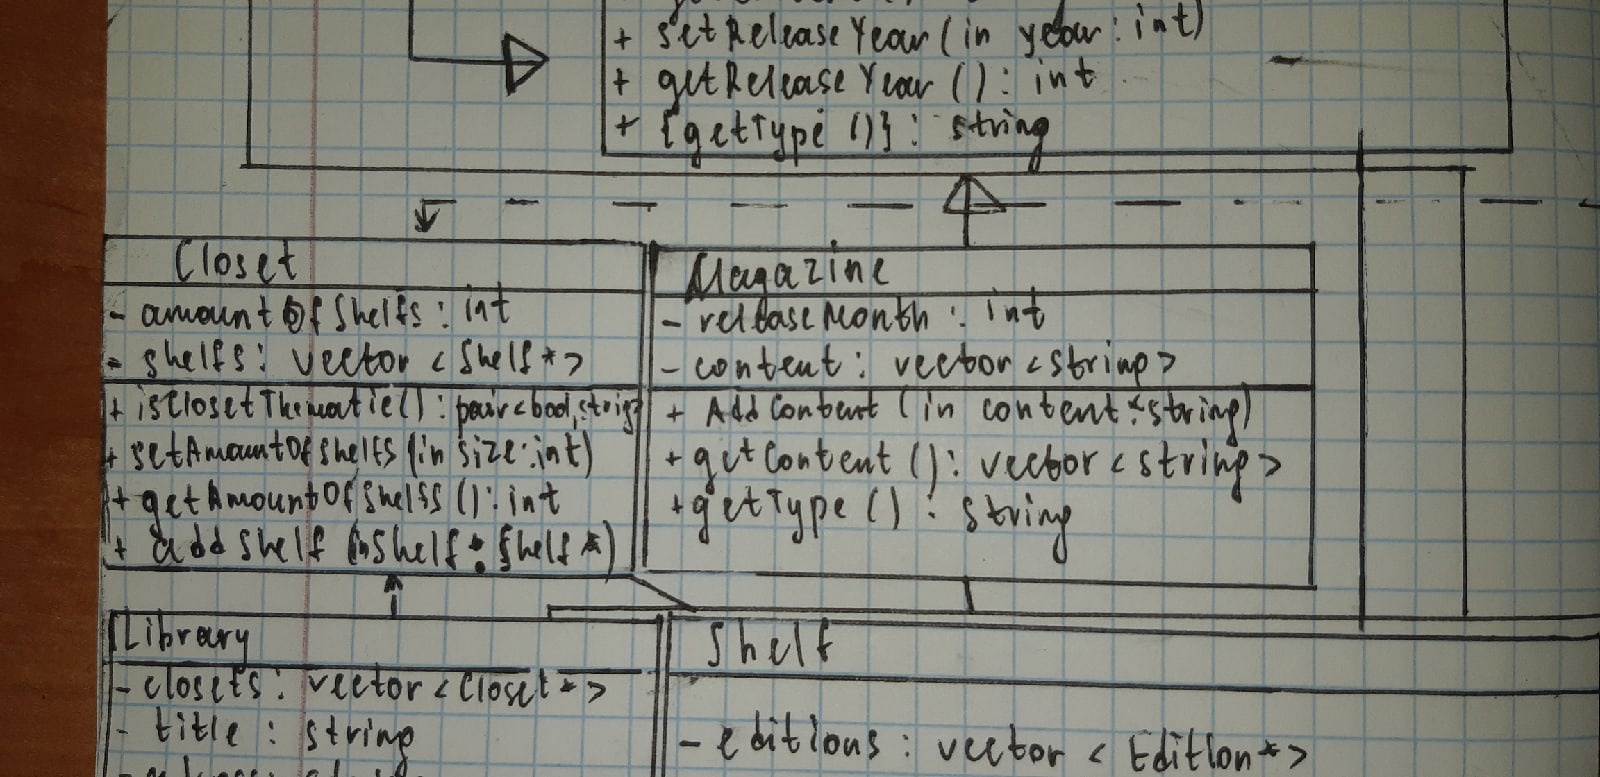 + setReleaseYear (in year: int)
+ getReleaseYear (): int
+ {getType ()}: string
Closet
- amountOfShelfs: int
- shelfs: vector <Shelf*>
+ isClosetThematic(): pair<bool,string>
+ setAmountOfShelfs (in size: int)
+ getAmountOfShelfs (): int
+ addShelf (in Shelf: Shelf*)
Magazine
- releaseMonth: int
- content: vector <string>
+ AddContent (in content: string)
+ getContent (): vector <string>
+ getType (): string
Library
- closets: vector <Closet*>
- title: string
Shelf
- editions: vector <Edition*>